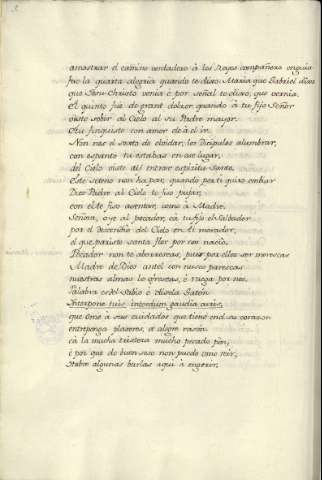 amostrar el camino verdadero à los Reyes compañera en guia
fue la quarta alegria quando te dixo Maria que Gabriel dixo
que Jesu Christo venia è por señal te dixo, que vernia.
El quinto fue de grant dolzor quando à tu fijo Señor
viste sobir al Cielo al su Padre mayor.
Et tu finquiste con amor de à él ir.
Non nas el sexto de olvidar, los Dicipulos alumbrar,
con espanto tu estabas en ese lugar.
del Cielo viste allí entrar espiritu Sante.
Este seteno non ha par, quando por ti quiso embiar
Dios Padre al Cielo te fizo pujar,
con el te fizo asentar, como à Madre.
Señora, oye al pecador, cà tu fijo el Salvador
por ti descendio del Cielo en ti morador,
el que pariste santa flor por nos nació.
Pecador non te aborrescas, pues por ellos ser merescas
Madre de Dios ant el con nusco parescas
nuestras almas le ofrescas, è ruega por nos.
Palabra es del Sabio è dicela Catón
Interpone tuis interdum gaudia curis,
que ome à sus cuidados que tiene en el su corazon
entreponga plaseres, è alegre razón
cà la mucha tristeza mucho pecado pon,
è por que de buen seso non puede ome reir,
Habre algunas burlas aqui à enxerir,